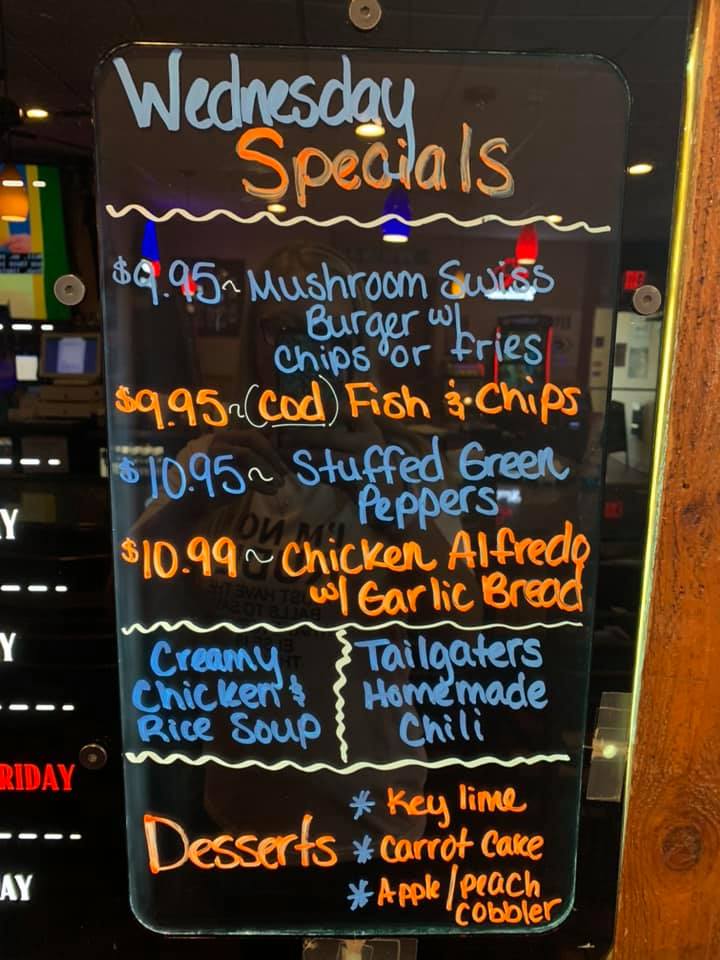 Wednesday
Specials
$9.95~Mushroom Swiss
Burger w/
Chips or fries
$9.95~(cod) Fish & Chips
$10.95~ Stuffed Green
Peppers
$10.99~Chicken Alfredo
w/ Garlic Bread
Creamy
Chicken &
Rice Soup
Tailgaters
Homemade
Chili
Desserts
* Key lime
* Carrot Cake
* Apple/peach
cobbler
Y
Y
RIDAY
AY